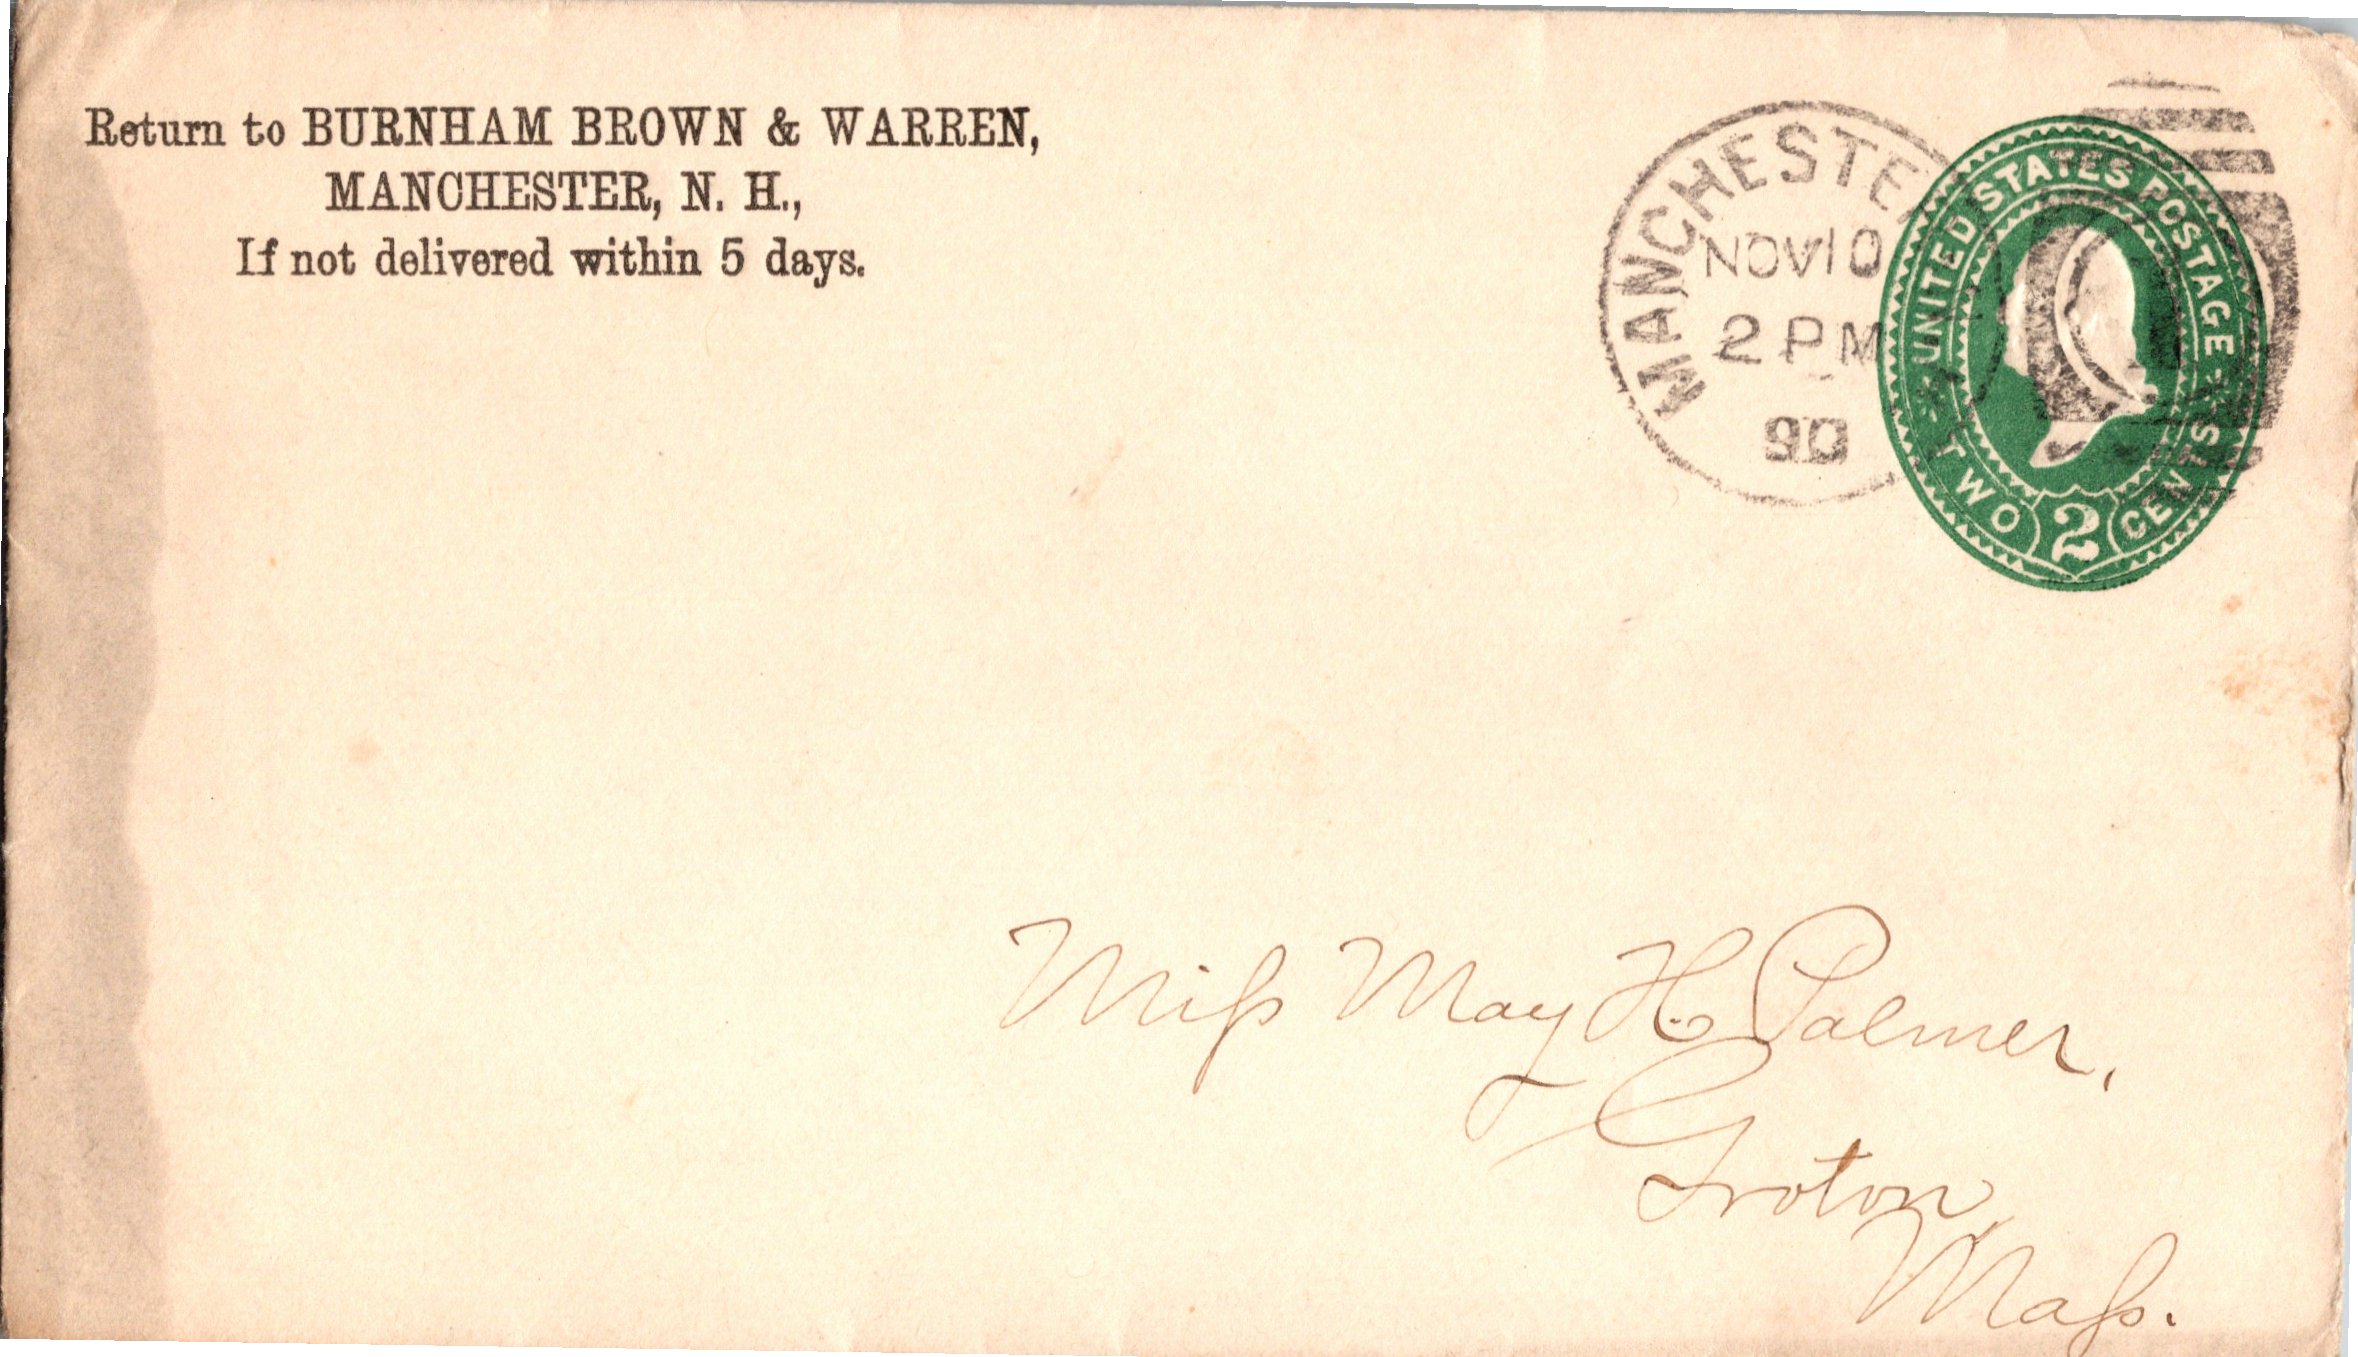 Return to BURNHAM BROWN & WARREN,
MANCHESTER, N. H.,
If not delivered within 5 days.
MANCHESTER
NOV 10
2 PM
90
UNITED STATES POSTAGE
TWO 2 CENTS
Miſs May H. Palmer,
Groton,
Maſs.